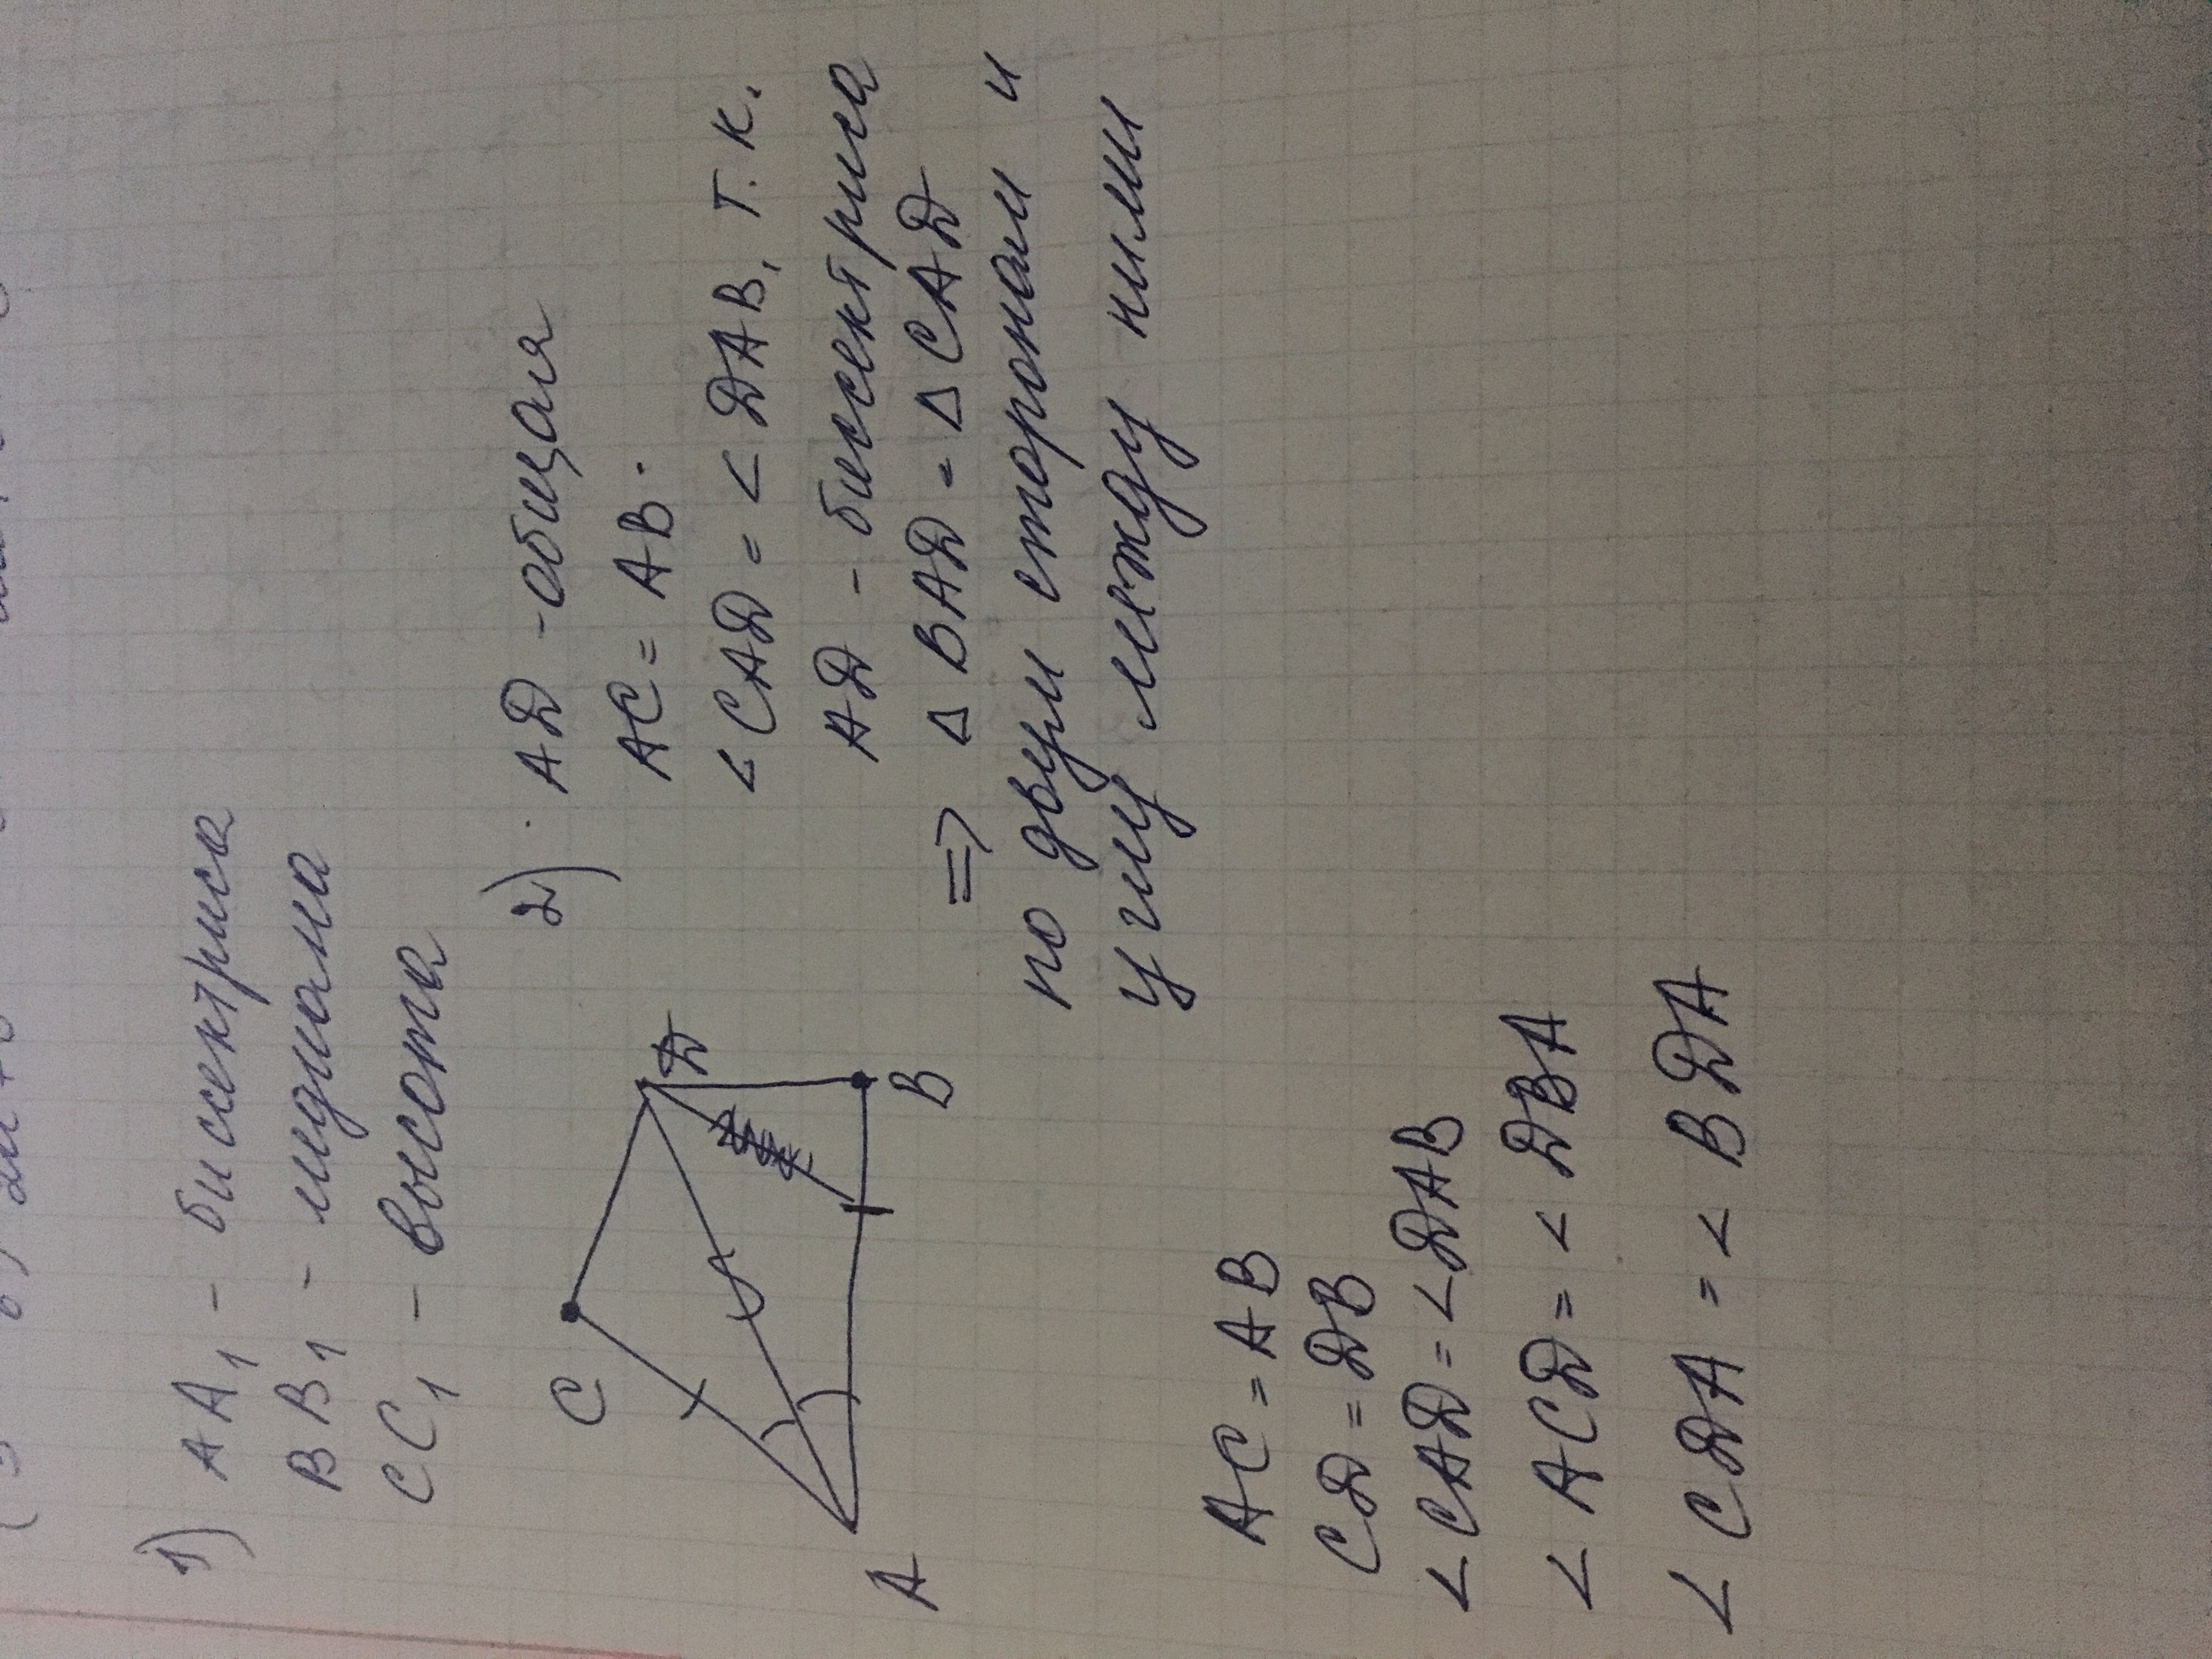 1) AA₁ - биссектриса
BB₁ - медиана
CC₁ - высота
C
D
A
B
2) AD - общая
AC = AB
∠CAD = ∠DAB, т.к.
AD - биссектриса
=> △BAD = △CAD
по двум сторонам и
углу между ними
AC = AB
CD = DB
∠CAD = ∠DAB
∠ACD = ∠DBA
∠CDA = ∠BDA